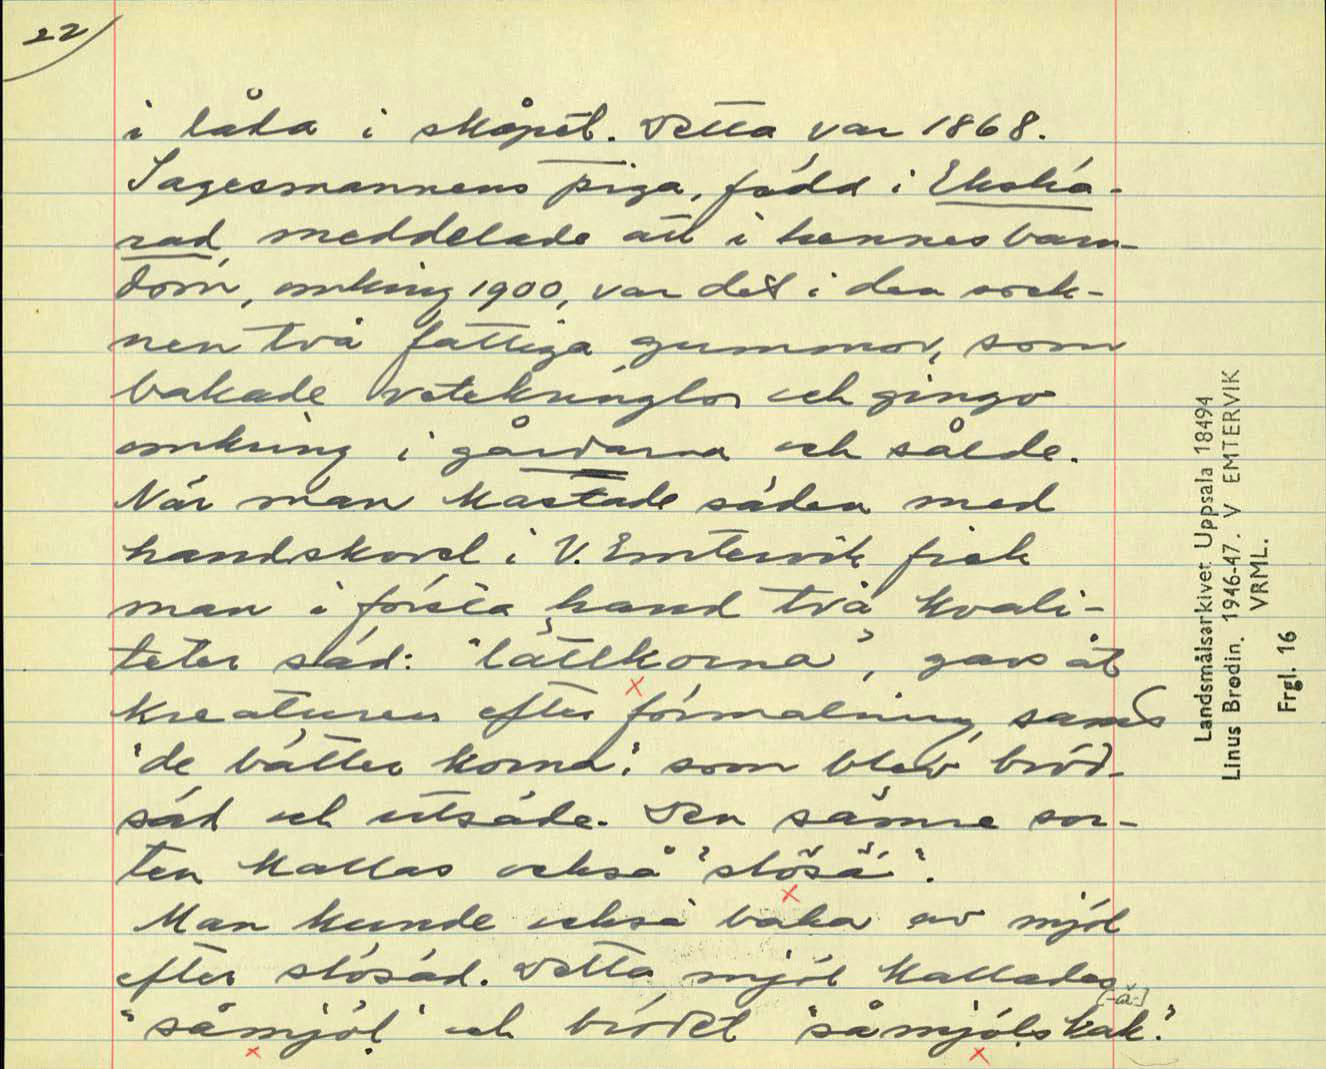 22
i låda i skåpet. Detta var 1868.
Sagesmannens piga, född i Ekshä-
rad, meddelade att i hennes barn-
dom, omkring 1900, var det i den sock-
nen två fattiga gummor, som
bakade vetekringlor och gingo
omkring i gårdarna och sålde.
När man kastade säden med
handskovel i V. Emtervik fick
man i första hand två kvali-
teter säd: "lättkorna", gavs åt
kreaturen efter förmalning, samt
"de bätter korna", som blev bröd-
säd och utsäde. Den sämre sor-
ten kallas också "slösä".
Man kunde också baka av mjöl
efter slösäd. Detta mjöl kallades
[-a-]
"såmjöl" och brödet "såmjölskak".
Landsmålsarkivet Uppsala 18494
Linus Brodin. 1946-47. V EMTERVIK
VRML.
Frgl. 16